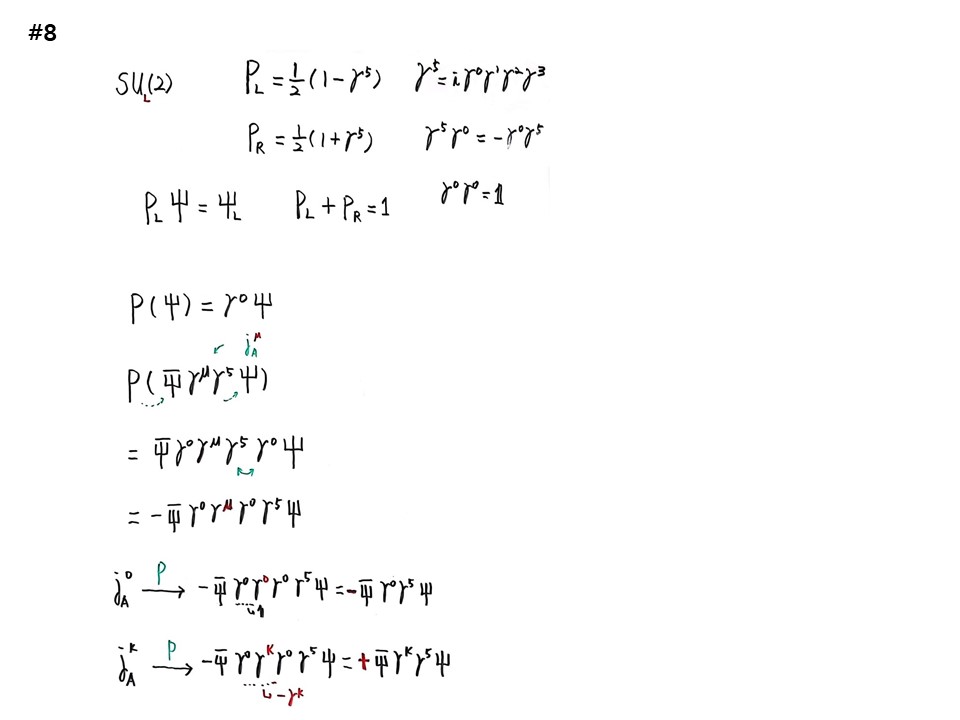 #8
SU_L(2) P_L = ½(1-γ⁵) γ⁵=iγ⁰γ¹γ²γ³
P_R = ½(1+γ⁵) γ⁵γ⁰ = -γ⁰γ⁵
γ⁰γ⁰=𝟙
P_L Ψ = Ψ_L P_L + P_R = 1
P(Ψ) = γ⁰Ψ
j_A^μ
P(Ψ̄γ^μγ⁵Ψ)
= Ψ̄γ⁰γ^μγ⁵γ⁰Ψ
= -Ψ̄γ⁰γ^μγ⁰γ⁵Ψ
j_A^0 P⟶ -Ψ̄γ⁰γ⁰γ⁰γ⁵Ψ = -Ψ̄γ⁰γ⁵Ψ
↳𝟙
j_A^k P⟶ -Ψ̄γ⁰γ^kγ⁰γ⁵Ψ = +Ψ̄γ^kγ⁵Ψ
↳-γ^k